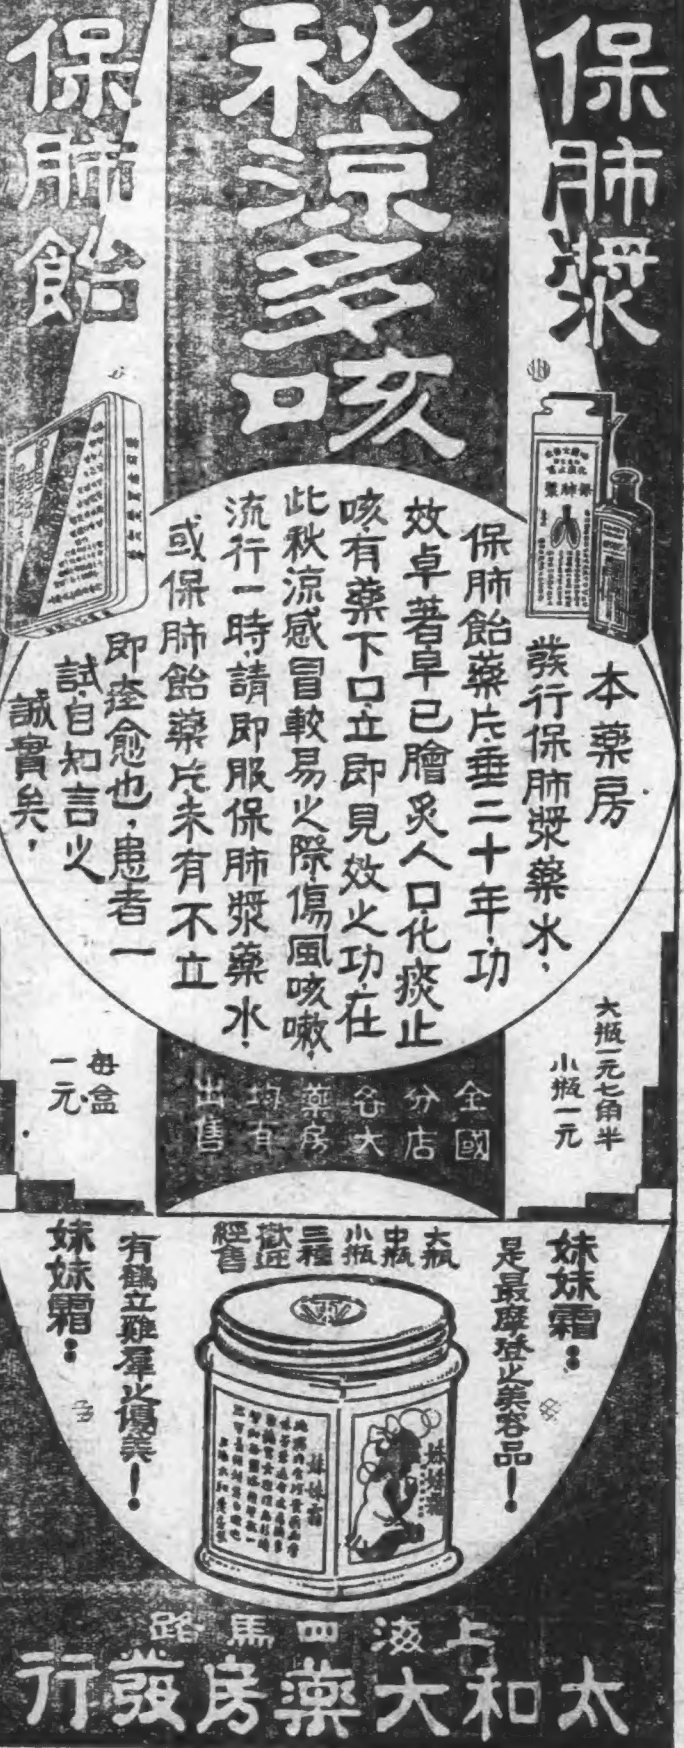 保肺漿
秋涼多咳
保肺飴
本藥房
發行保肺漿藥水、
保肺飴藥片垂二十年、功
效卓著早已膾炙人口、化痰止
咳、有藥下口立即見效之功、在
此秋涼感冒較易之際、傷風咳嗽、
流行一時、請即服保肺漿藥水、
或保肺飴藥片、未有不立
即痊愈也、患者一
試、自知言之
誠實矣、
保肺漿
大瓶一元七角半
小瓶一元
每盒
一元
全國
分店
各大
藥房
均有
出售
妹妹霜：
是最摩登之美容品！
大瓶
中瓶
小瓶
三種
歡迎
經售
有鶴立雞羣之優美！
妹妹霜：
妹妹霜
妹妹霜
上海四馬路
太和大藥房發行